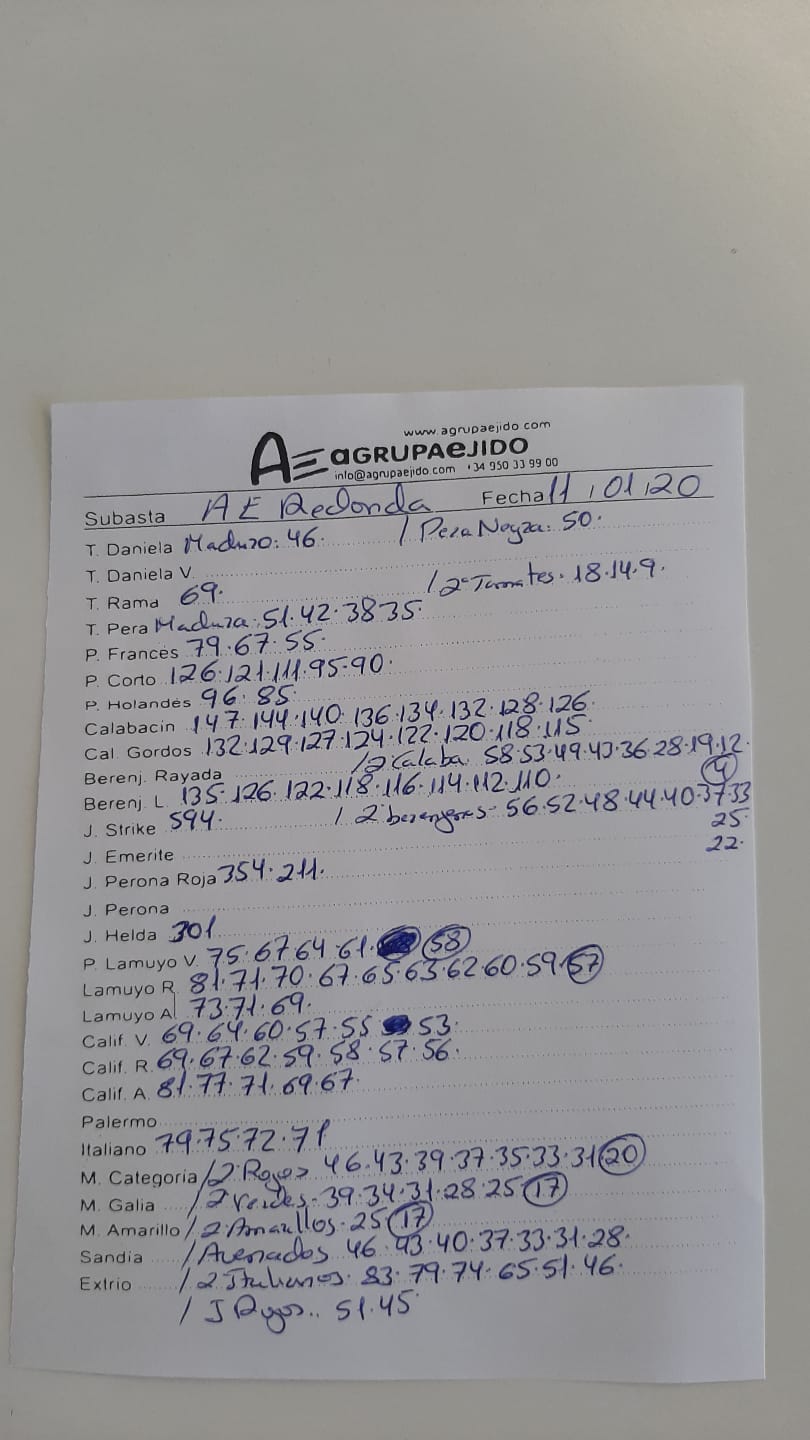 www.agrupaejido.com
AE aGRUPAeJIDO
info@agrupaejido.com +34 950 33 99 00
Subasta AE Redonda Fecha 11, 01, 20
T. Daniela Maduro: 46. / Pera Negra: 50.
T. Daniela V.
T. Rama 69. / 2ª Tomates. 18.14.9.
T. Pera Madura. 51.42.38 35.
P. Francés 79.67.55.
P. Corto 126.121.111.95.90.
P. Holandés 96.85.
Calabacin 147.144.140.136.134.132.128.126.
Cal. Gordos 132.129.127.124.122.120.118.115.
Berenj. Rayada /2 Calaba. 58.53.49.43.36.28.19.12. (4)
Berenj. L. 135.126.122.118.116.114.112.110.
J. Strike 594. / 2 berengenes- 56.52.48.44.40.37.33
25.
J. Emerite 22.
J. Perona Roja 354.211.
J. Perona
J. Helda 301
P. Lamuyo V. 75.67.64.61. (58)
Lamuyo R. 81.71.70.67.65.63.62.60.59.(57)
Lamuyo A 73.71.69.
Calif. V. 69.64.60.57.55 53.
Calif. R. 69.67.62.59.58.57.56.
Calif. A. 81.77.71.69.67.
Palermo
Italiano 79.75.72.71
M. Categoría /2 Rojos 46.43.39.37.35.33.31 (20)
M. Galia /2 Verdes- 39.34.31.28.25 (17)
M. Amarillo /2 Amarillos. 25 (17)
Sandía /Asenados 46.43.40.37.33.31.28.
Extrio /2 Italianos. 83.79.74.65.51.46.
/ J Rojos.. 51.45